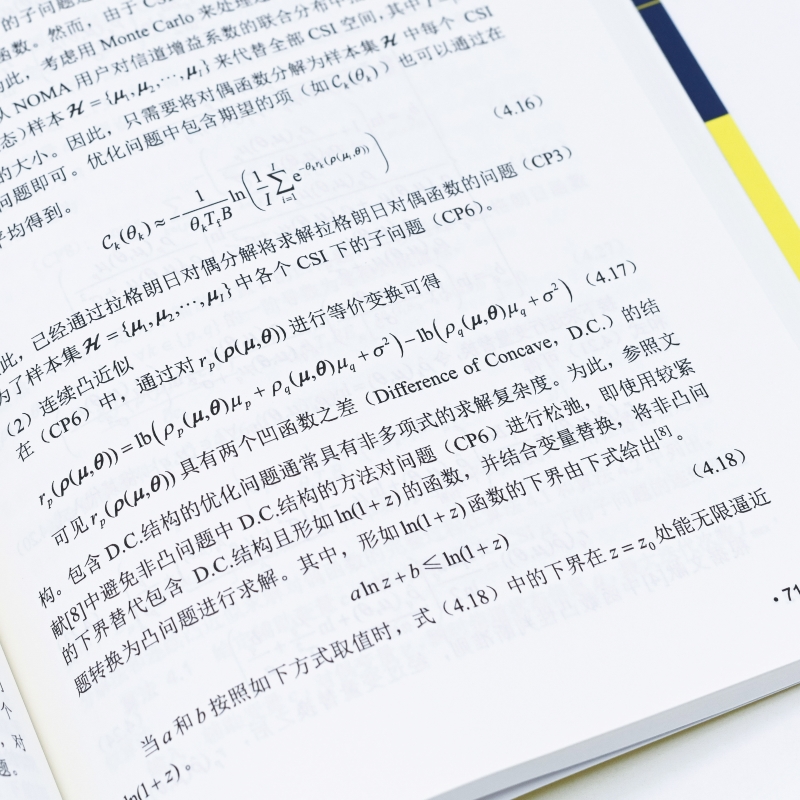 的子问题
函数。然而，由于
此，考虑用 Monte Carlo 来处理
从 NOMA 用户对信道增益系数的联合分布中
态)样本 𝓗 = {μ₁,μ₂,⋯,μ_I} 来代替全部 CSI 空间，其中
的大小。因此，只需要将对偶函数分解为样本集 𝓗 中每个 CSI
问题即可。优化问题中包含期望的项（如 𝒞_k(θ_k)）也可以通过在
平均得到。
𝒞_k(θ_k) ≈ −1/(θ_k T_f B) ln(1/I ∑_{i=1}^{I} e^{−θ_k r_k(ρ(μ_i,θ))}) （4.16）
此，已经通过拉格朗日对偶分解将求解拉格朗日对偶函数的问题（CP3）
为了样本集 𝓗 = {μ₁,μ₂,⋯,μ_I} 中各个 CSI 下的子问题（CP6）。
（2）连续凸近似
在（CP6）中，通过对 r_p(ρ(μ,θ)) 进行等价变换可得
r_p(ρ(μ,θ)) = lb(ρ_p(μ,θ)μ_p + ρ_q(μ,θ)μ_q + σ²) − lb(ρ_q(μ,θ)μ_q + σ²) （4.17）
可见 r_p(ρ(μ,θ)) 具有两个凹函数之差（Difference of Concave，D.C.）的结
构。包含 D.C.结构的优化问题通常具有非多项式的求解复杂度。为此，参照文
献[8]中避免非凸问题中 D.C.结构的方法对问题（CP6）进行松弛，即使用较紧
的下界替代包含 D.C.结构且形如 ln(1+z) 的函数，并结合变量替换，将非凸问
题转换为凸问题进行求解。其中，形如 ln(1+z) 函数的下界由下式给出[8]。
a ln z + b ≤ ln(1+z) （4.18）
当 a 和 b 按照如下方式取值时，式（4.18）中的下界在 z = z₀ 处能无限逼近
ln(1+z)。
•71
个
，对
题。